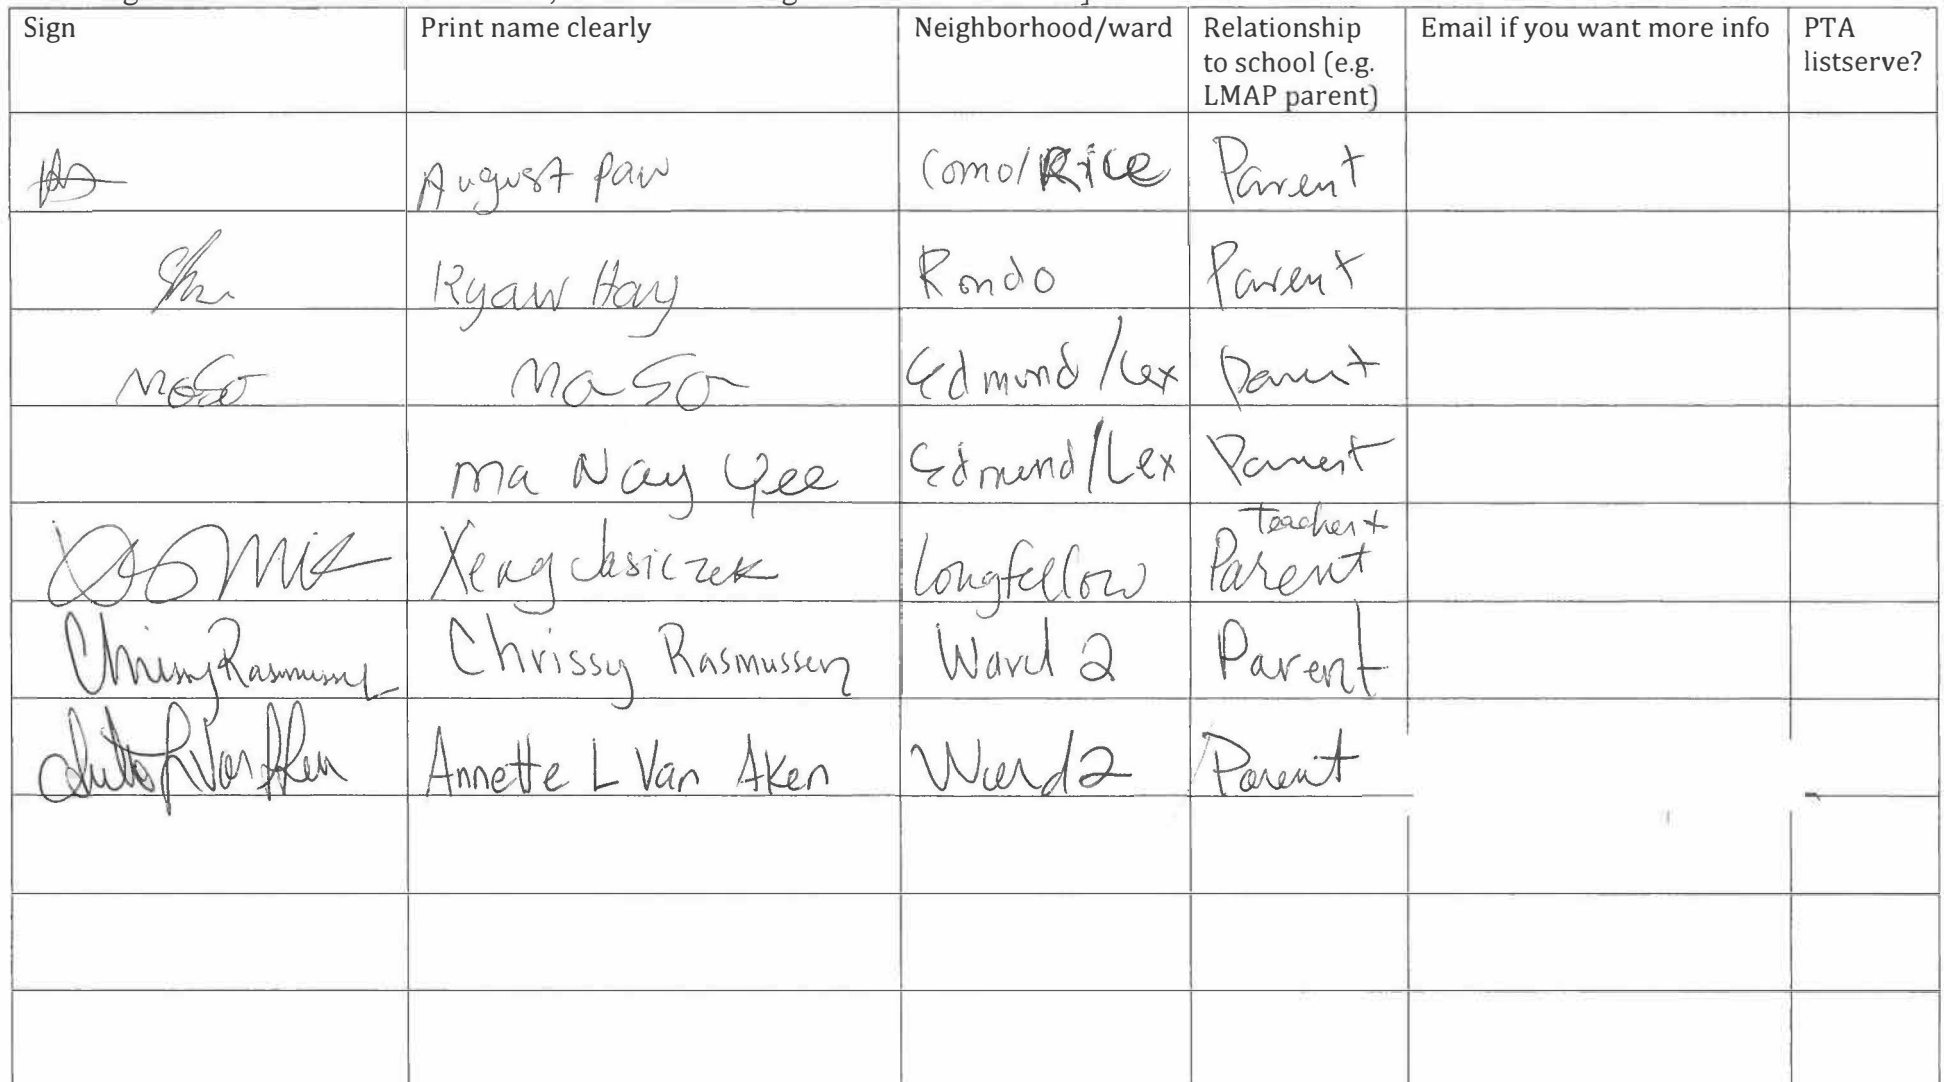 Sign Print name clearly Neighborhood/ward Relationship to school (e.g. LMAP parent) Email if you want more info PTA listserve?
August Paw Como/Rice Parent
Kyaw Hay Rondo Parent
MaSo Ma So Edmund/Lex Parent
Ma Nay Yee Edmund/Lex Parent
Xeng Jasiczek Longfellow Teacher + Parent
Chrissy Rasmussen Chrissy Rasmussen Ward 2 Parent
Annette L Van Aken Ward 2 Parent